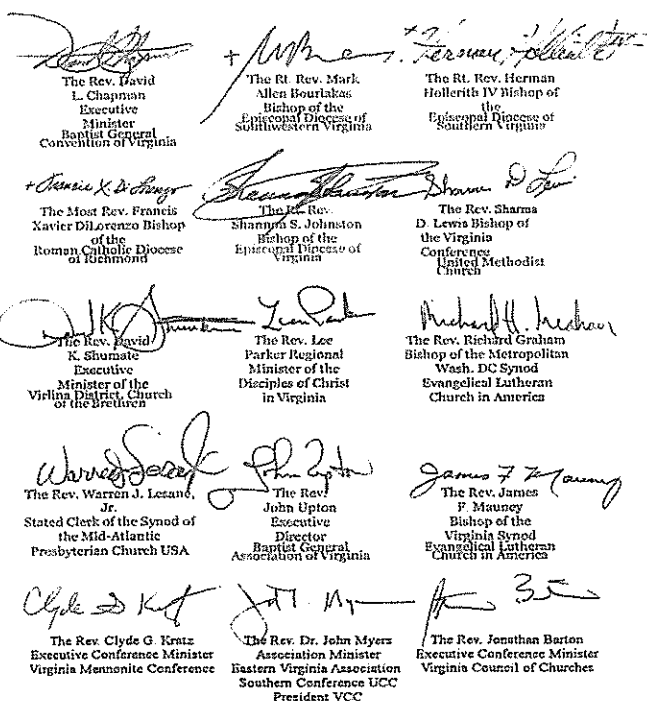 The Rev. David
L. Chapman
Executive
Minister
Baptist General
Convention of Virginia
The Rt. Rev. Mark
Allen Bourlakas
Bishop of the
Episcopal Diocese of
Southwestern Virginia
The Rt. Rev. Herman
Hollerith IV Bishop of
the
Episcopal Diocese of
Southern Virginia
+ Francis X. DiLorenzo
The Most Rev. Francis
Xavier DiLorenzo Bishop
of the
Roman Catholic Diocese
of Richmond
The Rt. Rev.
Shannon S. Johnston
Bishop of the
Episcopal Diocese of
Virginia
Sharma D Lewis
The Rev. Sharma
D. Lewis Bishop of
the Virginia
Conference
United Methodist
Church
The Rev. David
K. Shumate
Executive
Minister of the
Virlina District, Church
of the Brethren
Lee Parker
The Rev. Lee
Parker Regional
Minister of the
Disciples of Christ
in Virginia
Richard H. Graham
The Rev. Richard Graham
Bishop of the Metropolitan
Wash. DC Synod
Evangelical Lutheran
Church in America
The Rev. Warren J. Lesane,
Jr.
Stated Clerk of the Synod of
the Mid-Atlantic
Presbyterian Church USA
John Upton
The Rev.
John Upton
Executive
Director
Baptist General
Association of Virginia
James F Mauney
The Rev. James
F. Mauney
Bishop of the
Virginia Synod
Evangelical Lutheran
Church in America
Clyde G Kratz
The Rev. Clyde G. Kratz
Executive Conference Minister
Virginia Mennonite Conference
The Rev. Dr. John Myers
Association Minister
Eastern Virginia Association
Southern Conference UCC
President VCC
The Rev. Jonathan Barton
Executive Conference Minister
Virginia Council of Churches